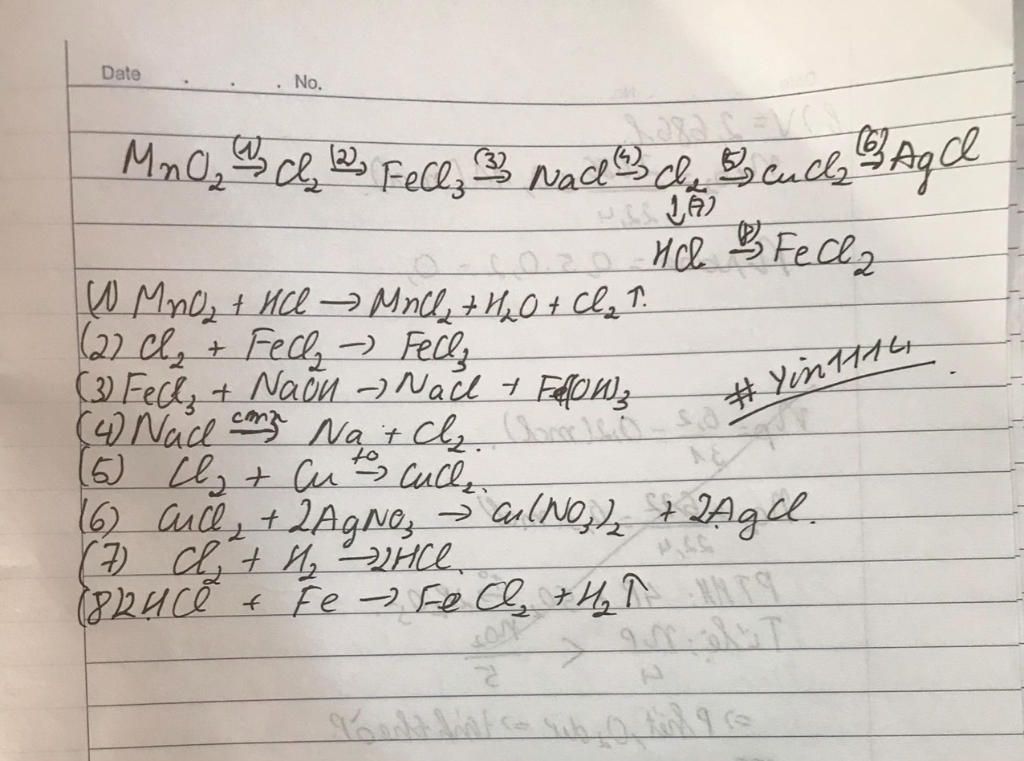 Date . . . No.
MnO₂ (1)→ Cl₂ (2)→ FeCl₃ (3)→ NaCl (4)→ Cl₂ (5)→ CuCl₂ (6)→ AgCl
↓(7)
HCl (8)→ FeCl₂
(1) MnO₂ + HCl → MnCl₂ + H₂O + Cl₂↑.
(2) Cl₂ + FeCl₂ → FeCl₃
(3) FeCl₃ + NaOH → NaCl + Fe(OH)₃
# Yin1114
(4) NaCl → Na + Cl₂.
(5) Cl₂ + Cu t°→ CuCl₂.
(6) CuCl₂ + 2AgNO₃ → Cu(NO₃)₂ + 2AgCl.
(7) Cl₂ + H₂ → 2HCl.
(8) 2HCl + Fe → FeCl₂ + H₂↑